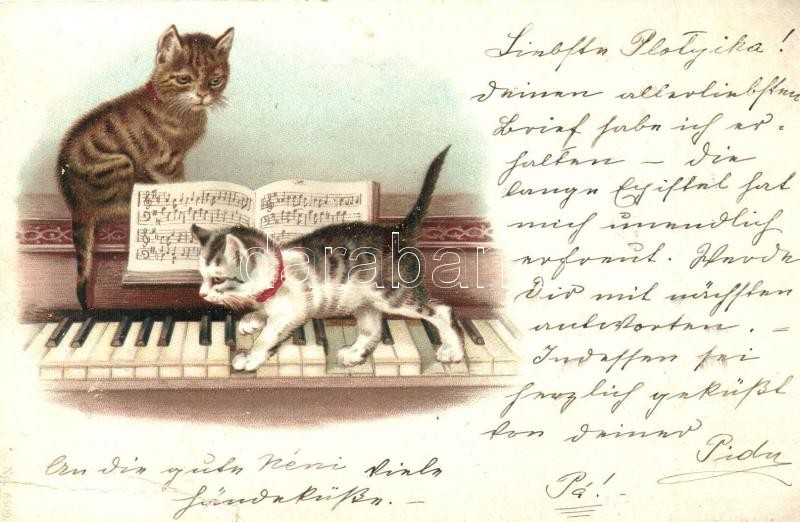 Liebste Plotyika!
deinen allerliebsten
Brief habe ich er-
halten – die
lange Epistel hat
mich unendlich
erfreut. Werde
Dir mit nächsten
antworten. –
Indessen sei
herzlich geküßt
von deiner
Pidu
Pá! –
An die gute Néni viele
Händeküße. –
darabanth
No. 6509